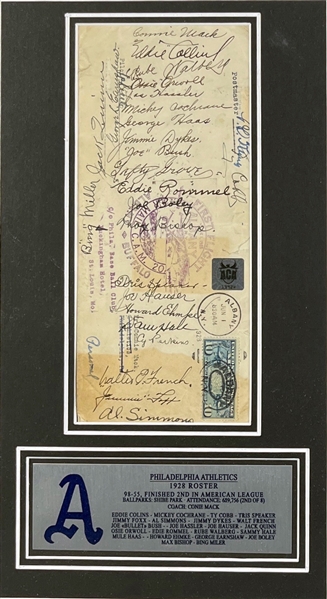 Connie Mack
Eddie Collins
Rube Walberg
Ossie Orwoll
Joe Hassler
Mickey Cochrane
George Haas
Jimmie Dykes
"Joe" Bush
Lefty Grove
Eddie Rommel
Joe Boley
Max Bishop
Tris Speaker
Joe Hauser
Howard Ehmke
Sam Hale
Cy Perkins
Walter E. French
Jimmie Foxx
Al. Simmons
Bing Miller
Jack Quinn
Ty Cobb
postmaster
FIRST
FLIGHT
C.A.M. 20
BUFFALO
c/o Phila. Base Ball Club
Buckingham Hotel,
St. Louis, Mo.
ALBANY
JUN 1
N.Y.
10
A
PHILADELPHIA ATHLETICS
1928 ROSTER
98-55, FINISHED 2ND IN AMERICAN LEAGUE
BALLPARK: SHIBE PARK - ATTENDANCE: 689,756 (2ND OF 8)
COACH: CONIE MACK
EDDIE COLINS - MICKEY COCHRANE - TY COBB - TRIS SPEAKER
JIMMY FOXX - AL SIMMONS - JIMMY DYKES - WALT FRENCH
JOE «BULLET» BUSH - JOE HASSLER - JOE HAUSER - JACK QUINN
OSIE ORWOLL - EDIE ROMMEL - RUBE WALBERG - SAMMY HALE
MULE HAAS - HOWARD EHMKE - GEORGE EARNSHAW - JOE BOLEY
MAX BISHOP - BING MILER